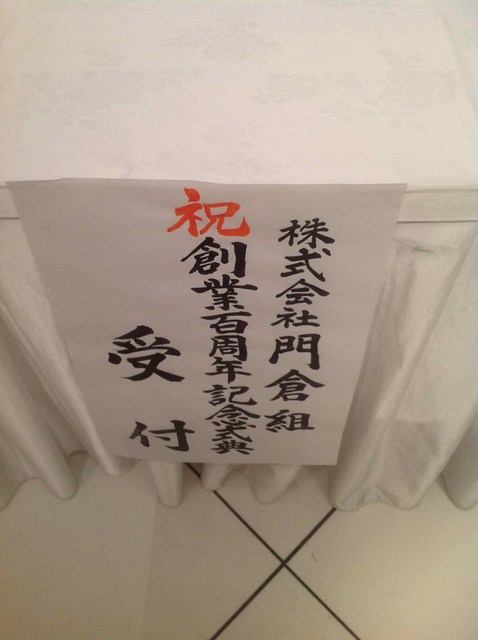 株式会社門倉組
祝創業百周年記念式典
受付